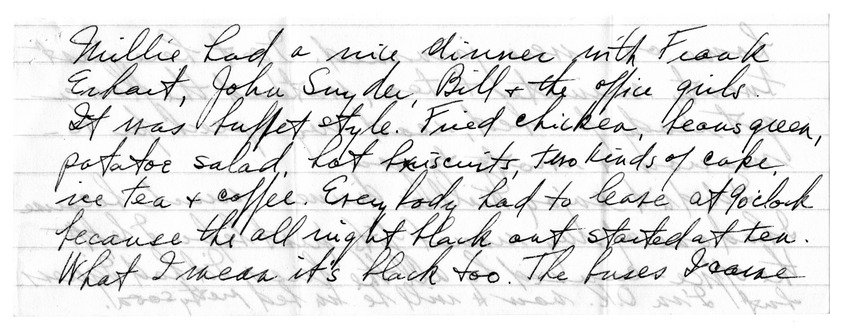 Millie had a nice dinner with Frank
Erhart, John Snyder, Bill + the office girls.
It was buffet style. Fried chicken, beans green,
potatoe salad, hot biscuits, two kinds of cake,
ice tea + coffee. Every body had to leave at 9 o'clock
because the all night black out started at ten.
What I mean it's black too. The buses I came